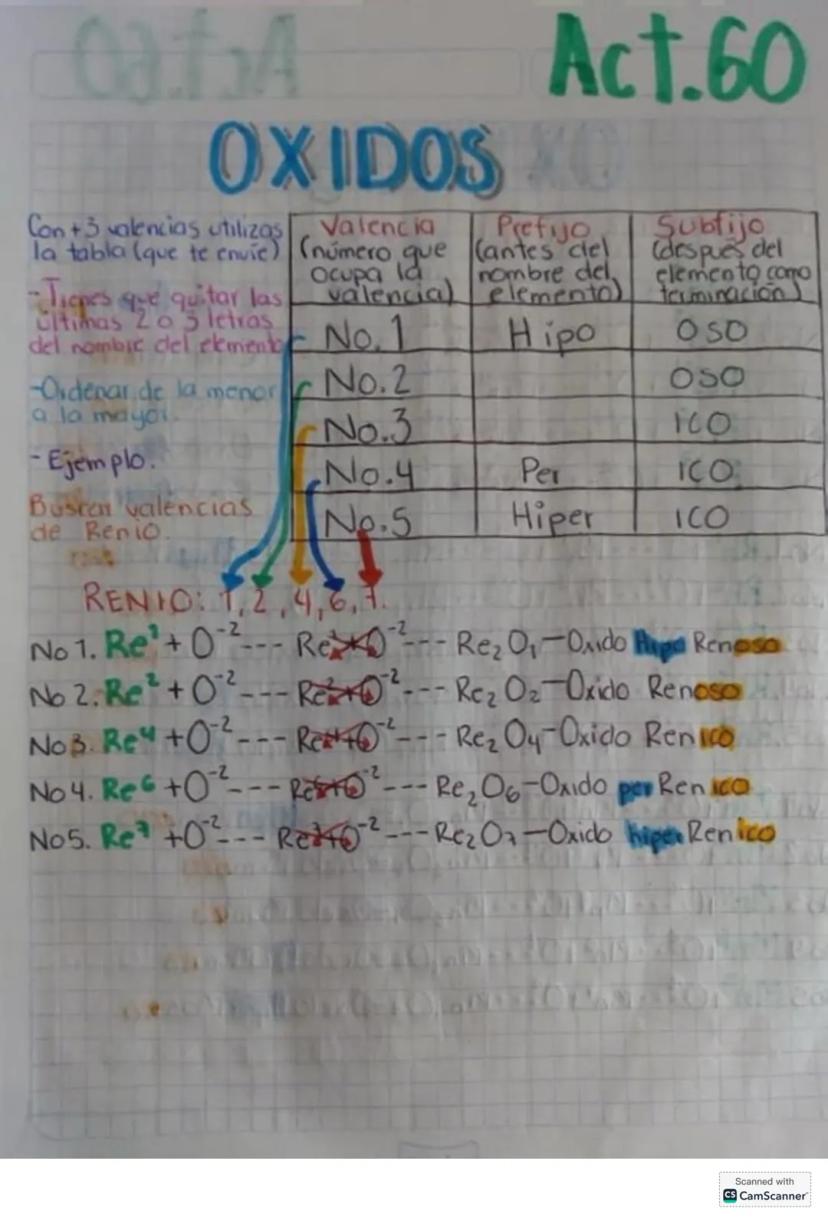 Act.60
OXIDOS
Con +3 valencias utilizas
la tabla (que te envie)
- Tienes que quitar las
últimas 2 o 3 letras
del nombre del elemento
- Ordenar de la menor
a la mayor.
- Ejemplo.
Buscar valencias
de Renio.
Valencia (número que ocupa la valencia) Prefijo (antes del nombre del elemento) Subfijo (después del elemento como terminación)
No.1 Hipo oso
No.2 oso
No.3 ico
No.4 Per ico
No.5 Hiper ico
RENIO: 1, 2, 4, 6, 7.
No 1. Re¹ + O⁻² --- Re¹+O⁻² --- Re₂O₁ — Oxido Hipo Renoso
No 2. Re² + O⁻² --- Re²+O⁻² --- Re₂O₂ — Oxido Renoso
No 3. Re⁴ + O⁻² --- Re⁴+O⁻² --- Re₂O₄ - Oxido Renico
No 4. Re⁶ + O⁻² --- Re⁶+O⁻² --- Re₂O₆ - Oxido per Renico
No 5. Re⁷ + O⁻² --- Re⁷+O⁻² --- Re₂O₇ — Oxido hiper Renico
Scanned with
CS CamScanner